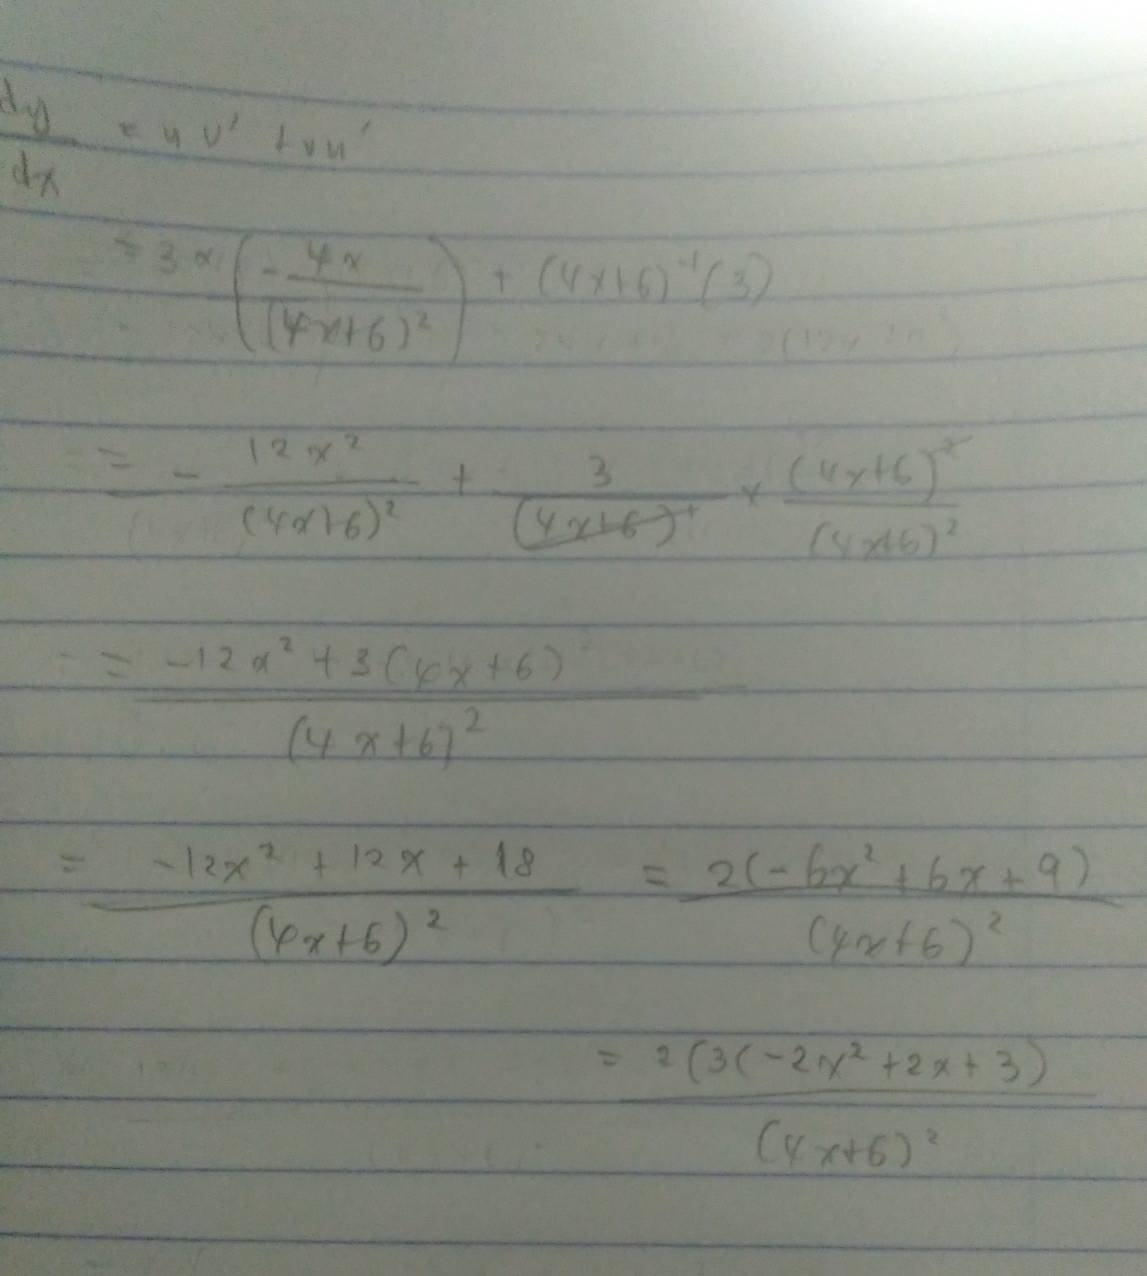 dy/dx = uv' + vu'
= 3x (- 4x/(4x+6)²) + (4x+6)⁻¹(3)
= - 12x²/(4x+6)² + 3/(4x+6)¹ × (4x+6)²/(4x+6)²
= -12x² + 3(4x+6)/(4x+6)²
= -12x² + 12x + 18/(4x+6)² = 2(-6x² + 6x + 9)/(4x+6)²
= 2(3(-2x² + 2x + 3)/(4x+6)²